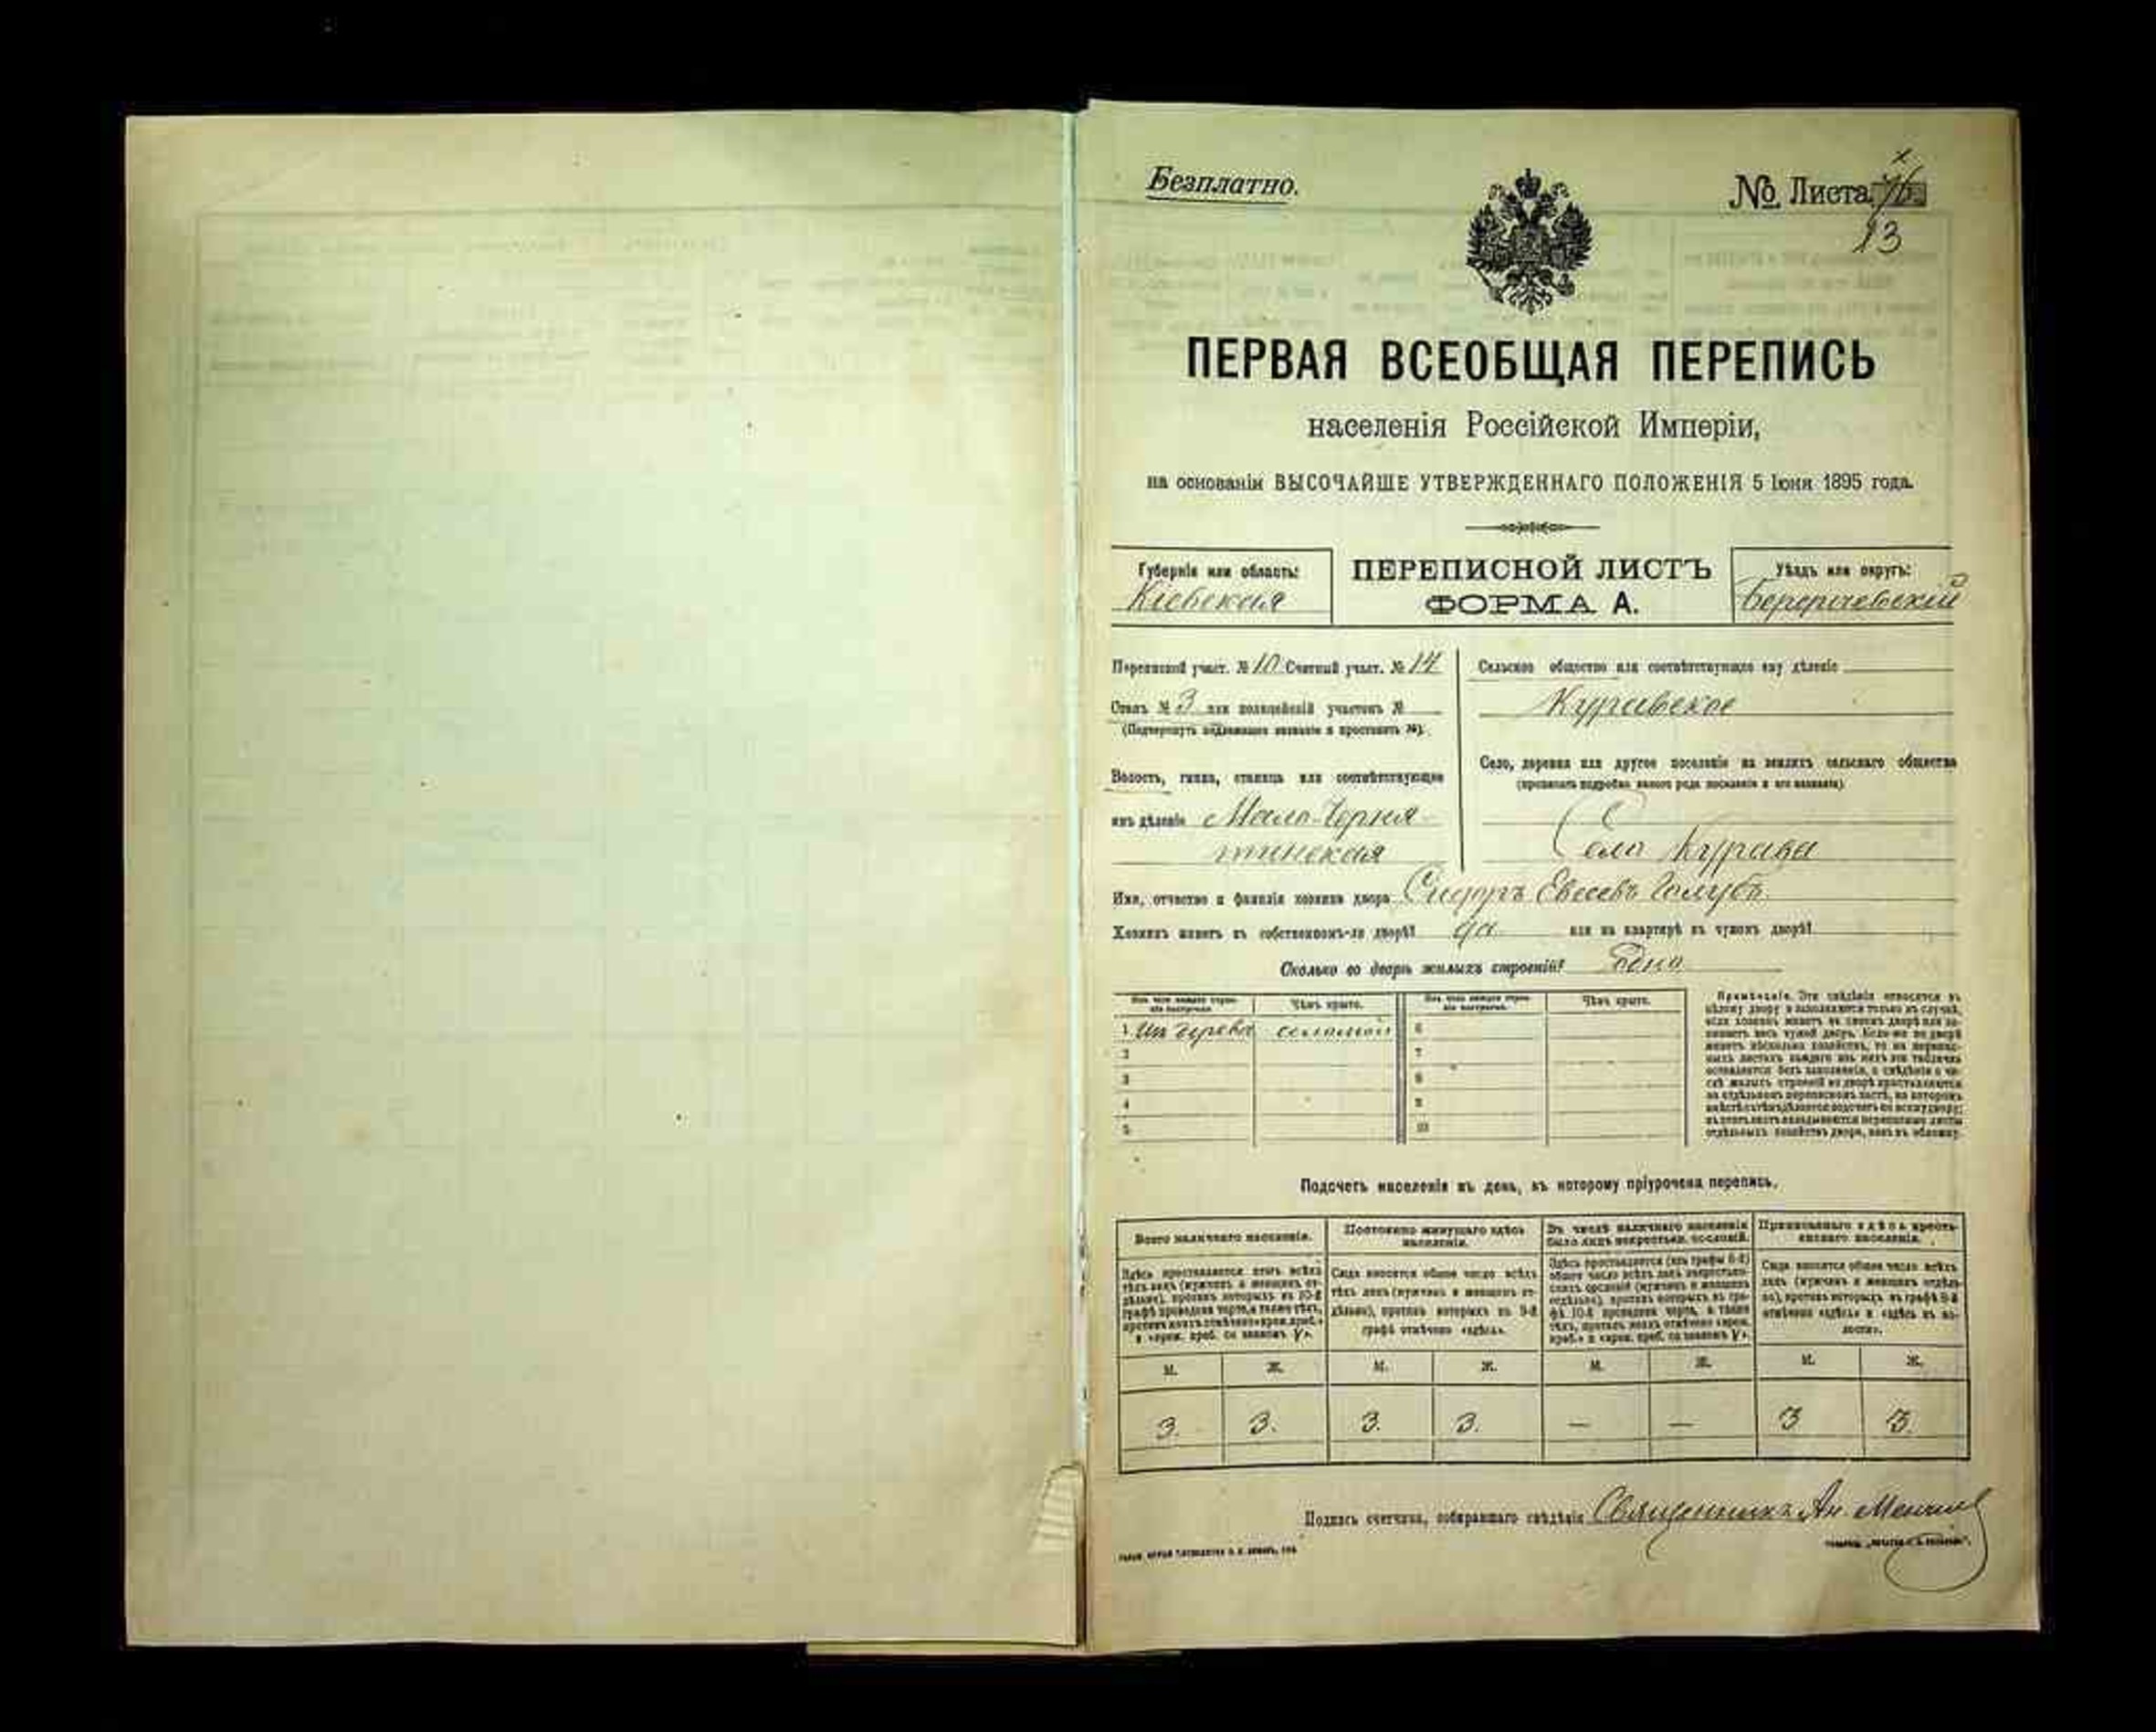 Безплатно.
№ Листа 76
13
ПЕРВАЯ ВСЕОБЩАЯ ПЕРЕПИСЬ
населенія Россійской Имперіи,
на основаніи ВЫСОЧАЙШЕ УТВЕРЖДЕННАГО ПОЛОЖЕНІЯ 5 Іюня 1895 года.
Губернія или область:
Кіевская
ПЕРЕПИСНОЙ ЛИСТЪ
ФОРМА А.
Уѣздъ или округъ:
Бердичевскій
Переписной участ. № 10 Счетный участ. № 14
Станъ № 3 или полицейскій участокъ №
(Подчеркнуть надлежащее названіе и проставить №).
Волость, гмина, станица или соотвѣтствующее
имъ дѣленіе Мало-Черня-
тинская
Сельское общество или соотвѣтствующее ему дѣленіе
Куравское
Село, деревня или другое поселеніе на земляхъ сельскаго общества
(прописать подробно какого рода поселеніе и его названіе)
Село Курава
Имя, отчество и фамилія хозяина двора Сидоръ Евсеевъ Голубъ.
Хозяинъ живетъ въ собственномъ-ли дворѣ? да или на квартирѣ въ чужомъ дворѣ?
Сколько во дворѣ жилыхъ строеній? Одно
Изъ чего каждое строе-
ніе построено.
Чѣмъ крыто.
Изъ чего каждое строе-
ніе построено.
Чѣмъ крыто.
1 Изъ дерева соломой 6
2 7
3 8
4 9
5 10
Примѣчаніе. Эти свѣдѣнія относятся къ
цѣлому двору и заполняются только въ случаѣ,
если хозяинъ живетъ въ своемъ дворѣ или за-
нимаетъ весь чужой дворъ. Если-же во дворѣ
живетъ нѣсколько хозяйствъ, то на перепис-
ныхъ листахъ каждаго изъ нихъ эта табличка
оставляется безъ заполненія, а свѣдѣнія о чи-
слѣ жилыхъ строеній во дворѣ проставляются
на отдѣльномъ переписномъ листѣ, на которомъ
вмѣстѣ съ тѣмъ дѣлается подсчетъ по всему двору;
въ этотъ листъ вкладываются переписные листы
отдѣльныхъ хозяйствъ двора, какъ въ обложку.
Подсчетъ населенія въ день, къ которому пріурочена перепись.
Всего наличнаго населенія.
Постоянно живущаго здѣсь
населенія.
Въ числѣ наличнаго населенія
было лицъ некрестьян. сословій.
Приписаннаго здѣсь кресть-
янскаго населенія.
Здѣсь проставляется итогъ всѣхъ
тѣхъ лицъ (мужчинъ и женщинъ от-
дѣльно), противъ которыхъ въ 10-й
графѣ проведена черта, а также тѣхъ,
противъ коихъ отмѣчено «врем. преб.»
и «врем. преб. со знакомъ V».
Сюда вносится общее число всѣхъ
тѣхъ лицъ (мужчинъ и женщинъ от-
дѣльно), противъ которыхъ въ 9-й
графѣ отмѣчено «здѣсь».
Здѣсь проставляется (изъ графы 6-й)
общее число всѣхъ лицъ некрестьян-
скихъ сословій (мужчинъ и женщинъ
отдѣльно), противъ которыхъ въ гра-
фѣ 10-й проведена черта, а также
тѣхъ, противъ коихъ отмѣчено «врем.
преб.» и «врем. преб. со знакомъ V».
Сюда вносится общее число всѣхъ
лицъ (мужчинъ и женщинъ отдѣль-
но), противъ которыхъ въ графѣ 8-й
отмѣчено «здѣсь» и «здѣсь въ во-
лости».
М. Ж. М. Ж. М. Ж. М. Ж.
3. 3. 3. 3. — — 3 3.
Подпись счетчика, собиравшаго свѣдѣнія Священникъ Ан.